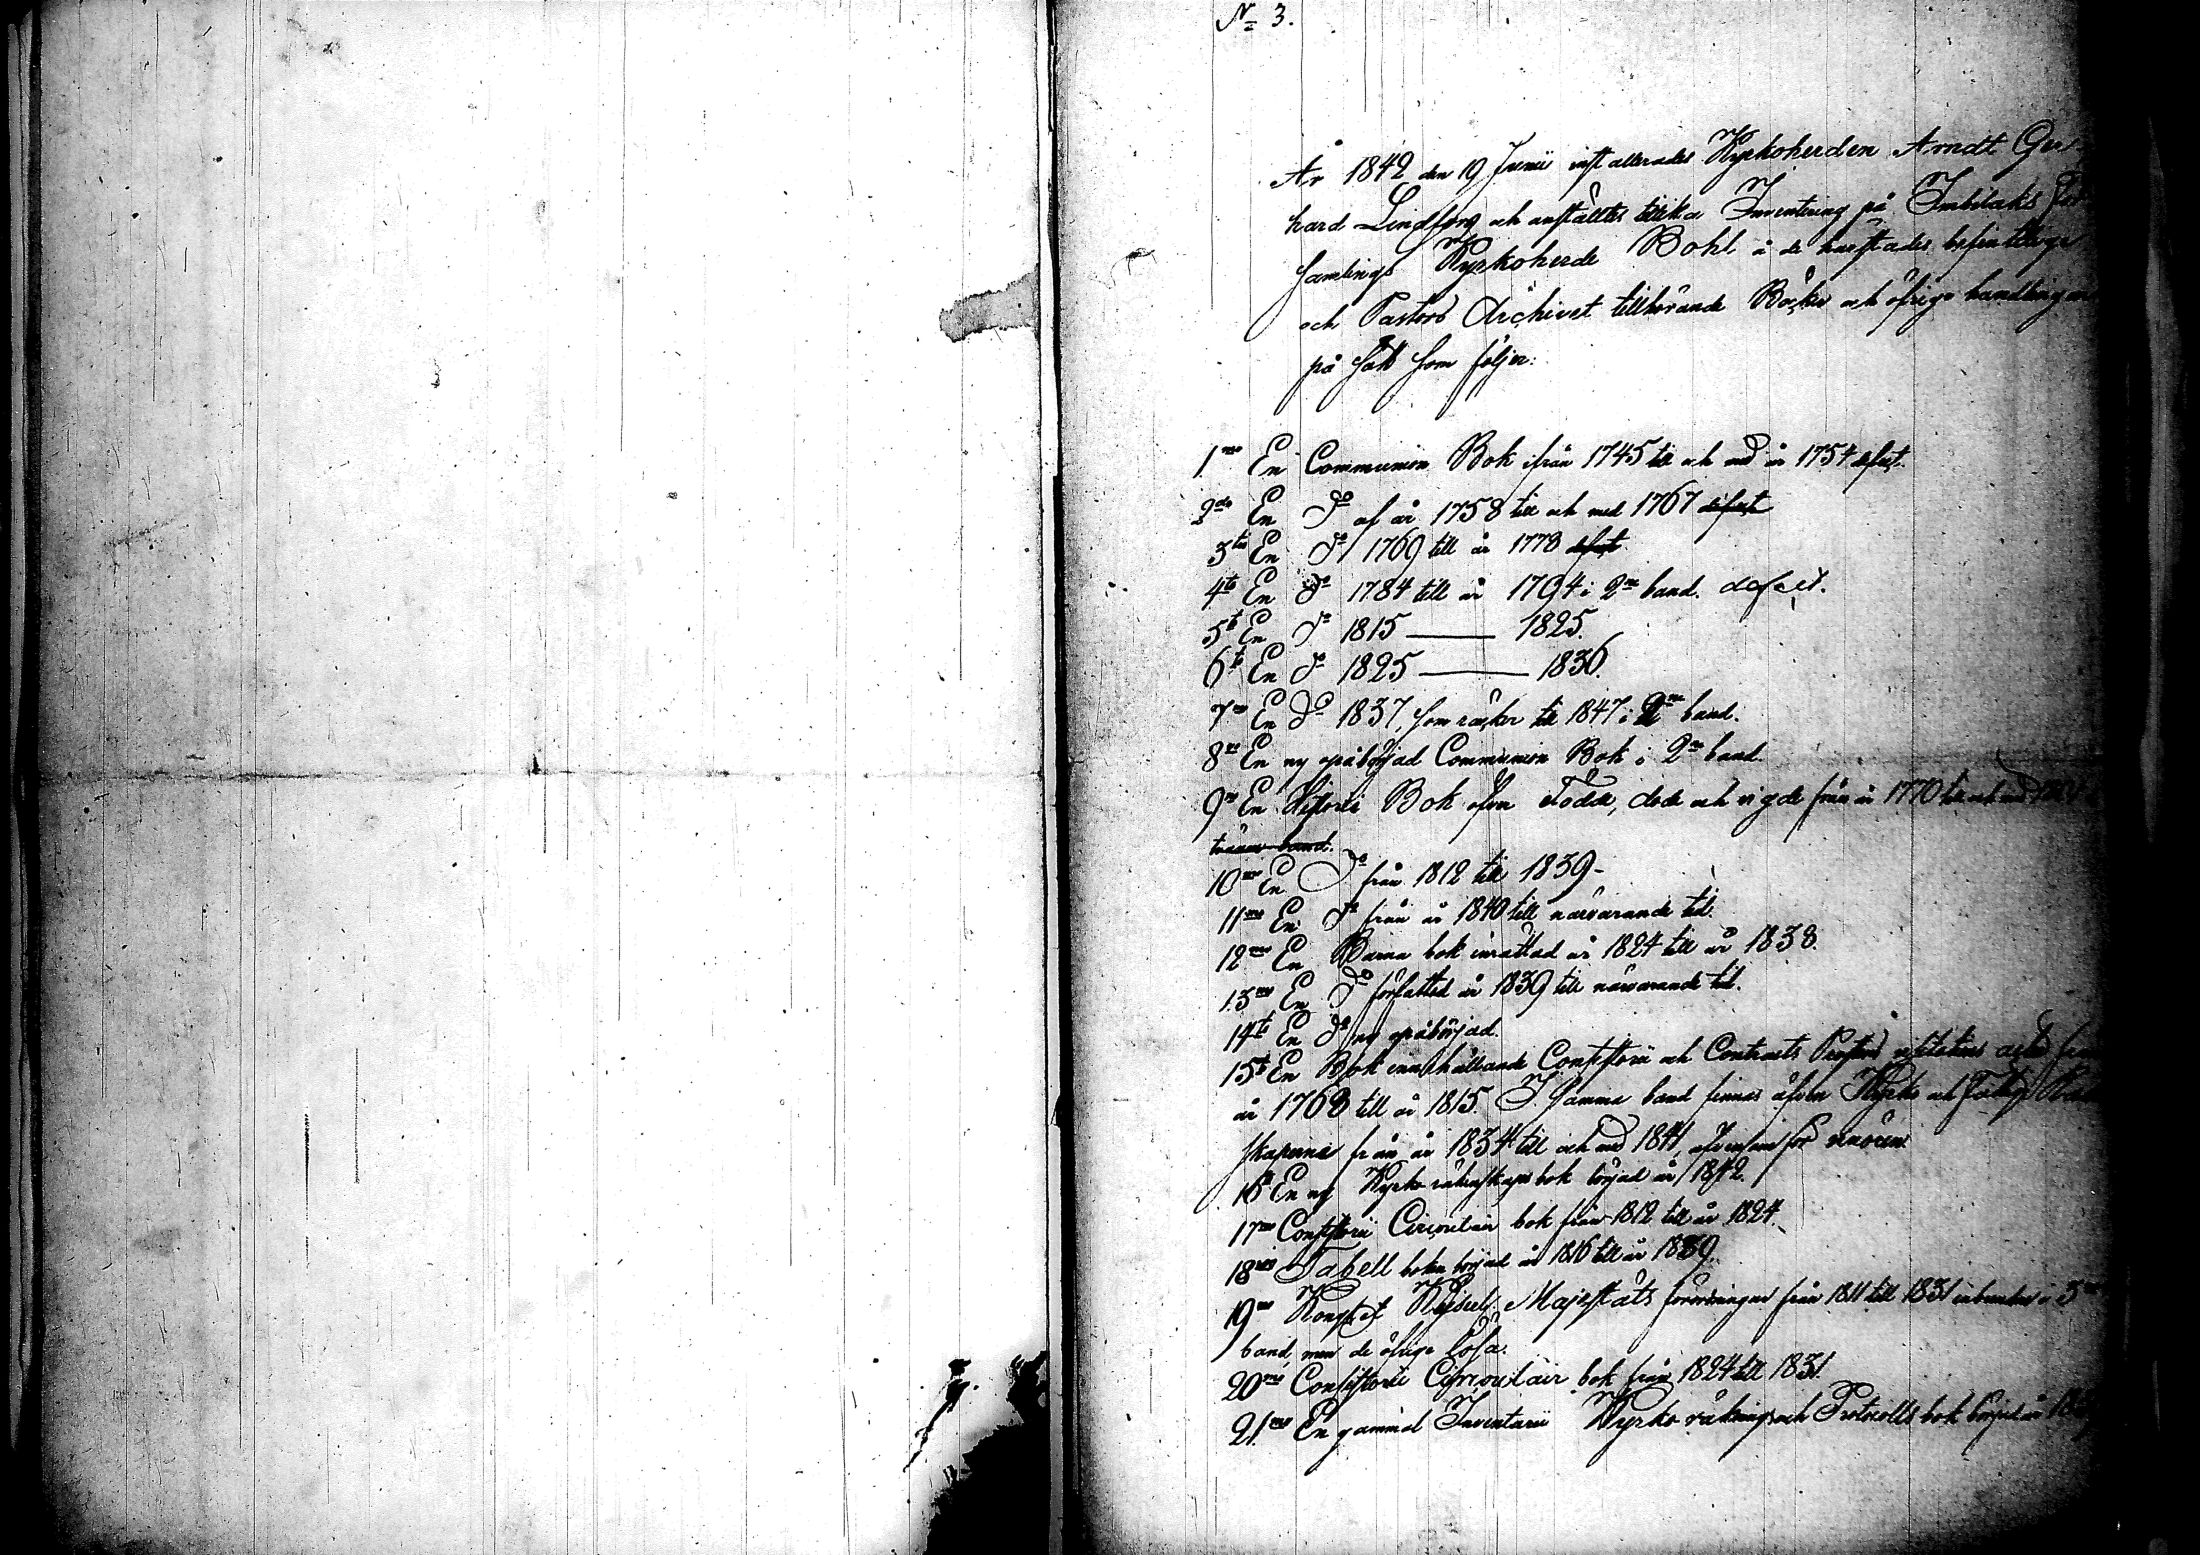 No 3.
År 1842 den 19 Junii installerades Kyrkoherden Arndt Ger
hard Lindfors och anstältes tillika Inventering på Imbilaks För
samlings Kyrkoherde Bohl å de härstädes befintlige
och Pastors Archivet tillhörande Böcker och öfrige handlingar
på sätt som följer:
1mo En Communion Bok ifrån 1745 till och med år 1754 defect.
2do En Do af år 1758 till och med 1767 defect
3tio En Do 1769 till år 1778 defect.
4to En Do 1784 till år 1794 i 2ne band. defect.
5to En Do 1815 — 1825.
6to En Do 1825 — 1836.
7mo En Do 1837, som räcker till 1847 i 2ne band.
8vo En ny opåbörjad Communion Bok i 2ne band.
9no En Historie Bok öfver Födde, döde och vigde från år 1770 till och med
tvänne band.
10mo En Do från 1812 till 1839-
11mo En Do från år 1840 till närvarande tid.
12mo En Barna bok inrättad år 1824 till år 1838.
13mo En Do författad år 1839 till närvarande tid.
14to En Do ny opåbörjad.
15to En Bok innehållande Consistorii och Contracts Prostens visitations acter från
år 1768 till år 1815. I samma band finnas äfven Kyrko och Fattig Räken
skaperne från år 1834 till och med 1841, äfvensom för
16to En ny Kyrko räkenskaps bok börjad år 1842.
17mo Consistorii Circulair bok från 1812 till år 1824
18mo Tabell boken börjad år 1816 till år 1839.
19no Kongl. Majestäts förordningar från 1811 till 1831 inbundne i 3ne
band, men de öfrige lösa.
20mo Consistorii Circulair bok från 1824 till 1831.
21mo En gammal Inventarii Kyrko räknings och Protocolls bok börjad år